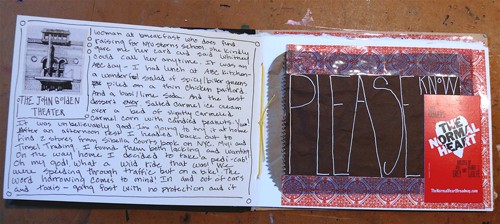 woman at breakfast who does fund
raising for NPU storms school. She kindly
gave me her card and said Whitney
could call her anytime. It was an
ABC day - I had lunch at ABC Kitchen -
a wonderful salad of spicy/bitter greens
piled on a thin chicken paillard.
And a basil/lime soda. And the best
dessert ever. Salted Caramel ice cream
over a bed of slightly caramelled
Carmel corn with candied peanuts. Yum!
THE JOHN GOLDEN
THEATER
It was unbelievably good. I'm going to try it at home.
After an afternoon rest I headed back out to
find 2 stores from Smalla Courts book on NYC. Muji and
Tinsel Trading. I found them both lacking and wanting.
On the way home I decided to take a pedi-cab!
Oh my God! What a wild ride, that was! We
were speeding through traffic but on a bike! The
word harrowing comes to mind! In and out of cars
and taxis - going fast with no protection and it
PLEASE KNOW
THE
NORMAL
HEART
TheNormalHeartBroadway.com